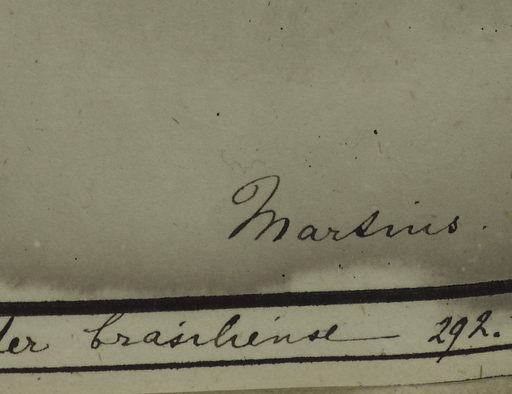 Martius.
der brasiliense 292.